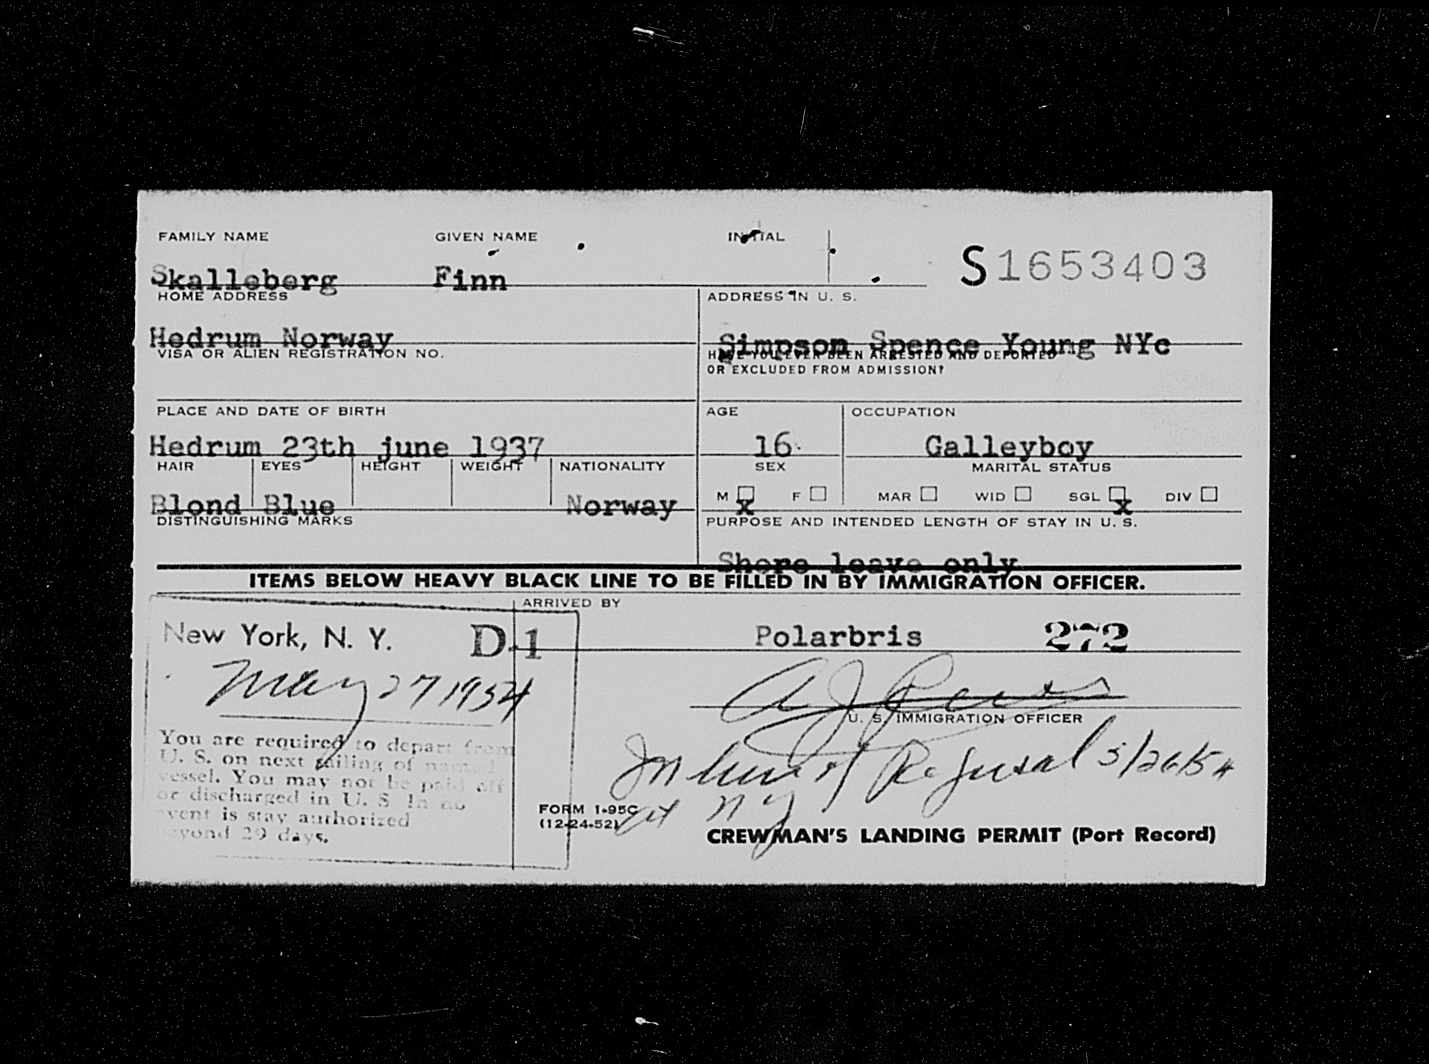 FAMILY NAME GIVEN NAME INITIAL
S1653403
Skalleberg Finn
HOME ADDRESS ADDRESS IN U. S.
Hedrum Norway Simpson Spence Young NYc
VISA OR ALIEN REGISTRATION NO. HAVE YOU EVER BEEN ARRESTED AND DEPORTED
OR EXCLUDED FROM ADMISSION?
PLACE AND DATE OF BIRTH AGE OCCUPATION
Hedrum 23th june 1937 16 Galleyboy
HAIR EYES HEIGHT WEIGHT NATIONALITY SEX MARITAL STATUS
M F MAR WID SGL DIV
Blond Blue Norway x x
DISTINGUISHING MARKS PURPOSE AND INTENDED LENGTH OF STAY IN U. S.
Shore leave only
ITEMS BELOW HEAVY BLACK LINE TO BE FILLED IN BY IMMIGRATION OFFICER.
ARRIVED BY
New York, N. Y. D-1 Polarbris 272
May 27 1954
A J
U. S. IMMIGRATION OFFICER
You are required to depart from
U. S. on next sailing of named
vessel. You may not be paid off
or discharged in U. S. In no
event is stay authorized
beyond 29 days.
In lieu of Refusal 5/26/54
at NY
FORM I-95C
(12-24-52)
CREWMAN'S LANDING PERMIT (Port Record)